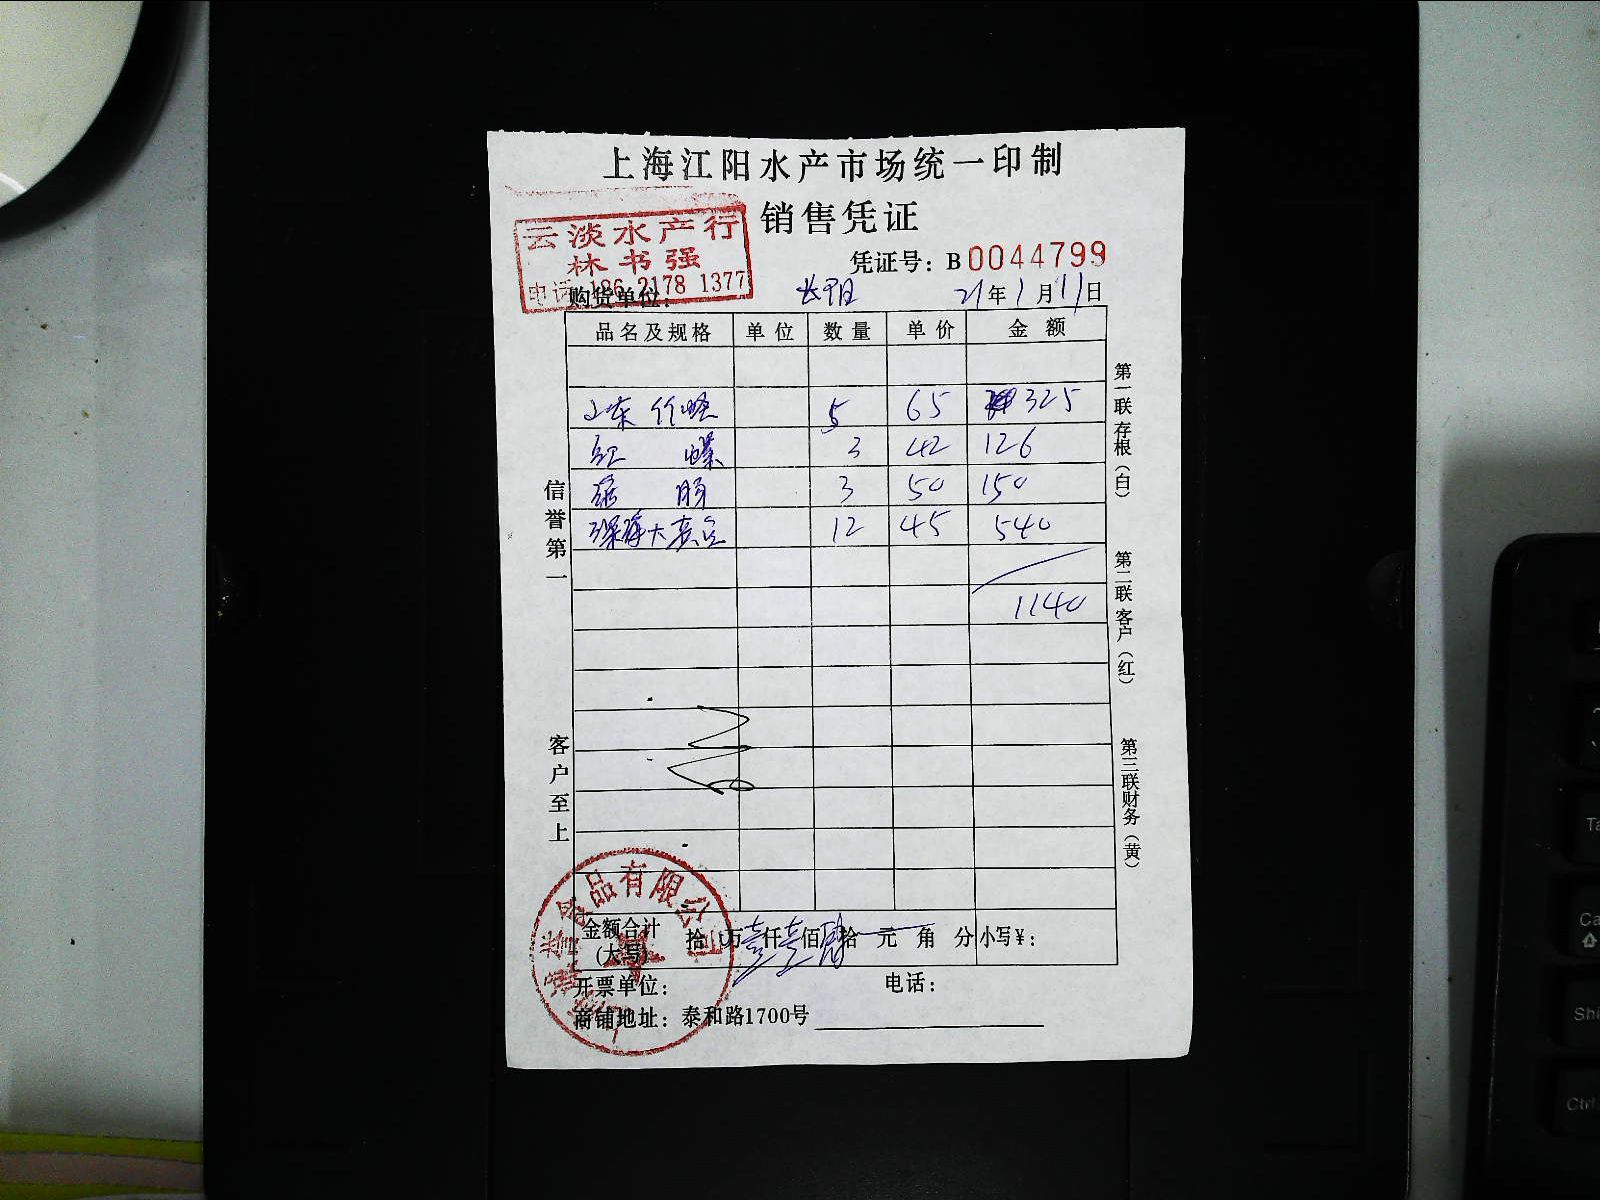 上海江阳水产市场统一印制
销售凭证
云淡水产行
林书强
电话 186 2178 1377
凭证号：B0044799
购货单位： 长阳 21年1月11日
品名及规格 单位 数量 单价 金额
山东 竹蛏 5 65 325
红 螺 3 42 126
3 50 150
深海大 12 45 540
1140
信誉第一
客户至上
第一联存根（白）
第二联客户（红）
第三联财务（黄）
金额合计（大写） 拾 万壹仟壹佰肆拾 元 角 分 小写￥：
开票单位： 电话：
商铺地址：泰和路1700号
食品有限公司